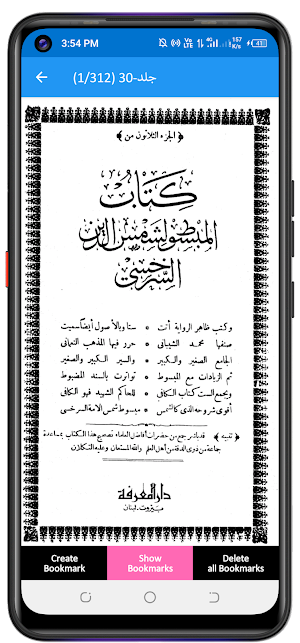 3:54 PM Vo LTE 4G 157 K/s 41
جلد-30 (1/312)
﴿ الجزء الثلاثون من ﴾
كتاب
المبسوط لشمس الدين
السرخسي
وكتب ظاهر الرواية أتت • ستا وبالأصول أيضا سميت
صنفها محمد الشيباني • حرر فيها المذهب النعماني
الجامع الصغير والكبير • والسير الكبير والصغير
ثم الزيادات مع المبسوط • تواترت بالسند المضبوط
ويجمع الست كتاب الكافي • للحاكم الشهيد فهو الكافي
أقوى شروحه الذي كالشمس • مبسوط شمس الأمة السرخسي
﴿ تنبيه ﴾ قد باشر جمع من حضرات أفاضل العلماء تصحيح هذا الكتاب بمساعدة
جماعة من ذوي الدقة من أهل العلم والله المستعان وعليه التكلان
دار المعرفة
بيروت - لبنان
Create Bookmark
Show Bookmarks
Delete all Bookmarks